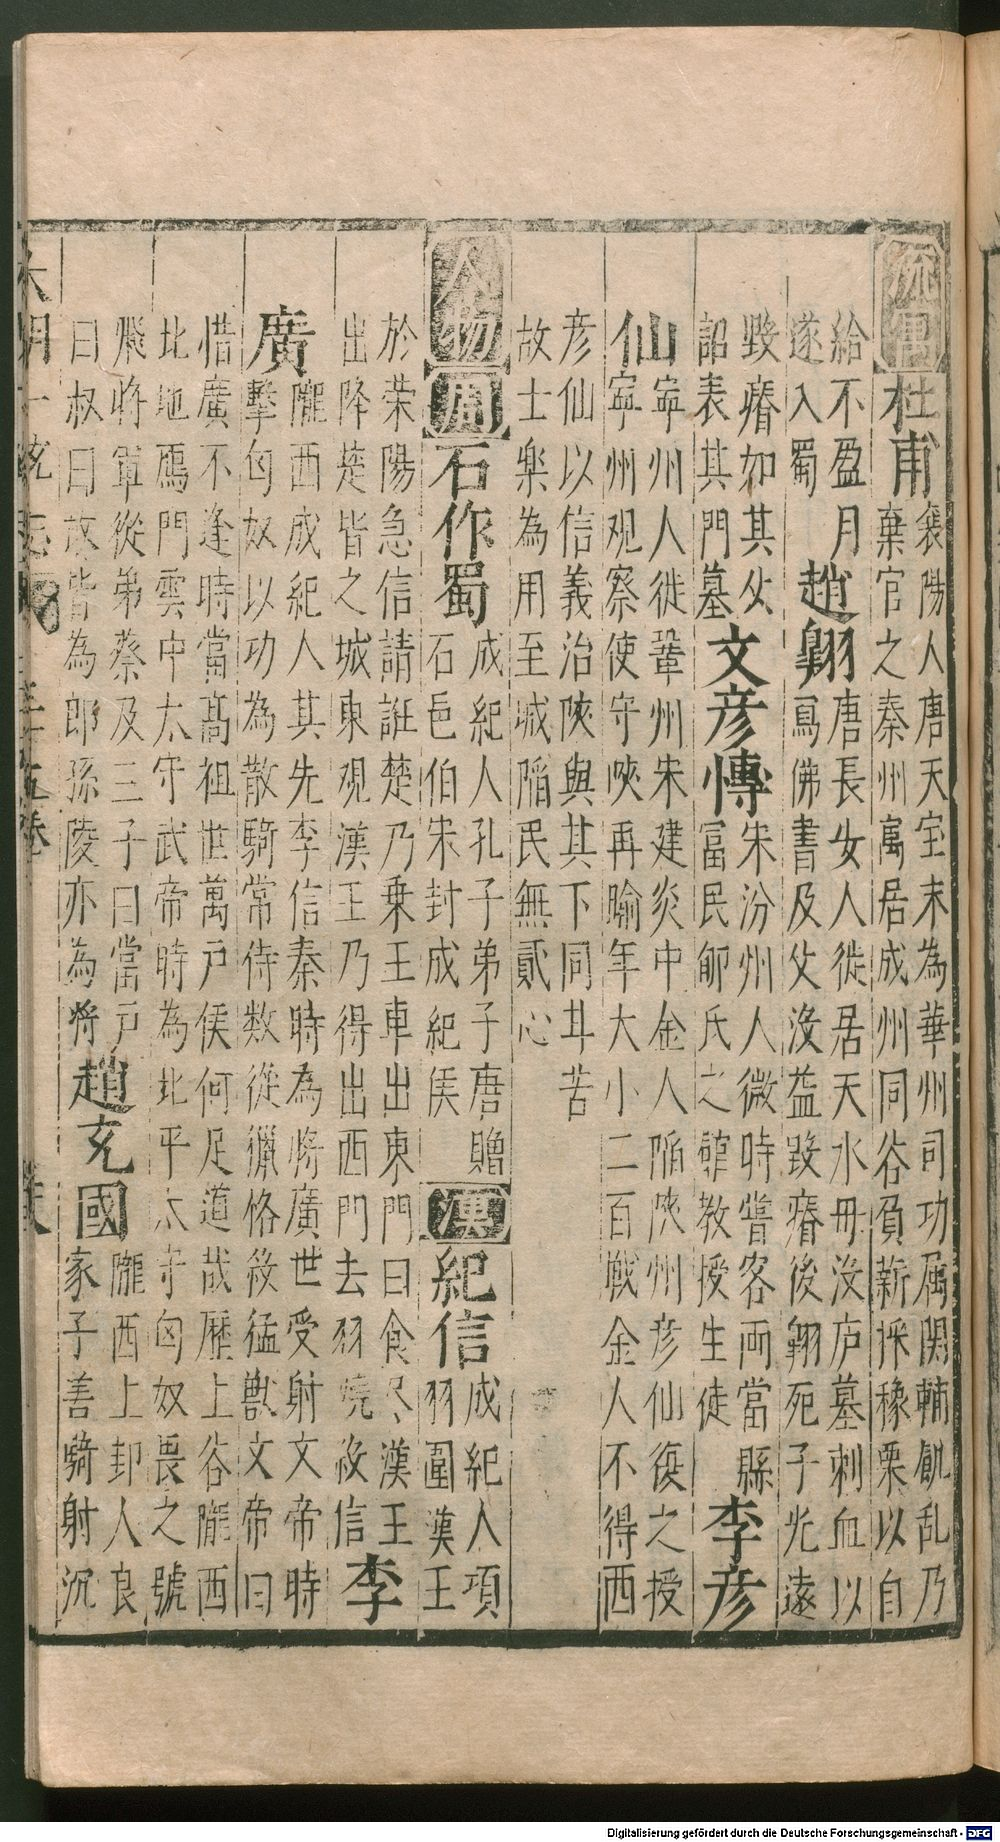 流寓杜甫襄陽人唐天宝末為華州司功属関輔飢乱乃
棄官之秦州寓居成州同谷負薪採橡栗以自
給不盈月
遂入蜀
趙翺唐長女人徙居天水毋没庐墓刺血以
寫佛書及父没益毀瘠後翺死子光遠
毀瘠如其父
詔表其門墓
文彦慱宋汾州人微時嘗客両當縣
冨民郇氏之舘教授生徒
李彦
仙寕州人徙鞏州宋建炎中金人陥陝州彦仙復之授
寕州观察使守陝再踰年大小二百戦金人不得西
彦仙以信義治陝與其下同甘苦
故士樂為用至城陥民無貳心
人物周石作蜀成紀人孔子弟子唐贈
石邑伯宋封成紀侯
漢紀信成紀人項
羽圍漢王
於荣陽急信請誑楚乃乗王車出東門曰食尽漢王
出降楚皆之城東观漢王乃得出西門去羽燒殺信
李
廣隴西成紀人其先李信秦時為将廣世受射文帝時
擊匈奴以功為散騎常侍数從獵格殺猛獸文帝曰
惜廣不逢時當髙祖世萬户侯何足道哉歷上谷隴西
北地鴈門雲中太守武帝時為北平太守匈奴畏之號
飛将軍從弟蔡及三子曰當户
曰叔曰敢皆為郎孫陵亦為将
趙充國隴西上邽人良
家子善騎射沉
大明一統志
Digitalisierung gefördert durch die Deutsche Forschungsgemeinschaft - DFG